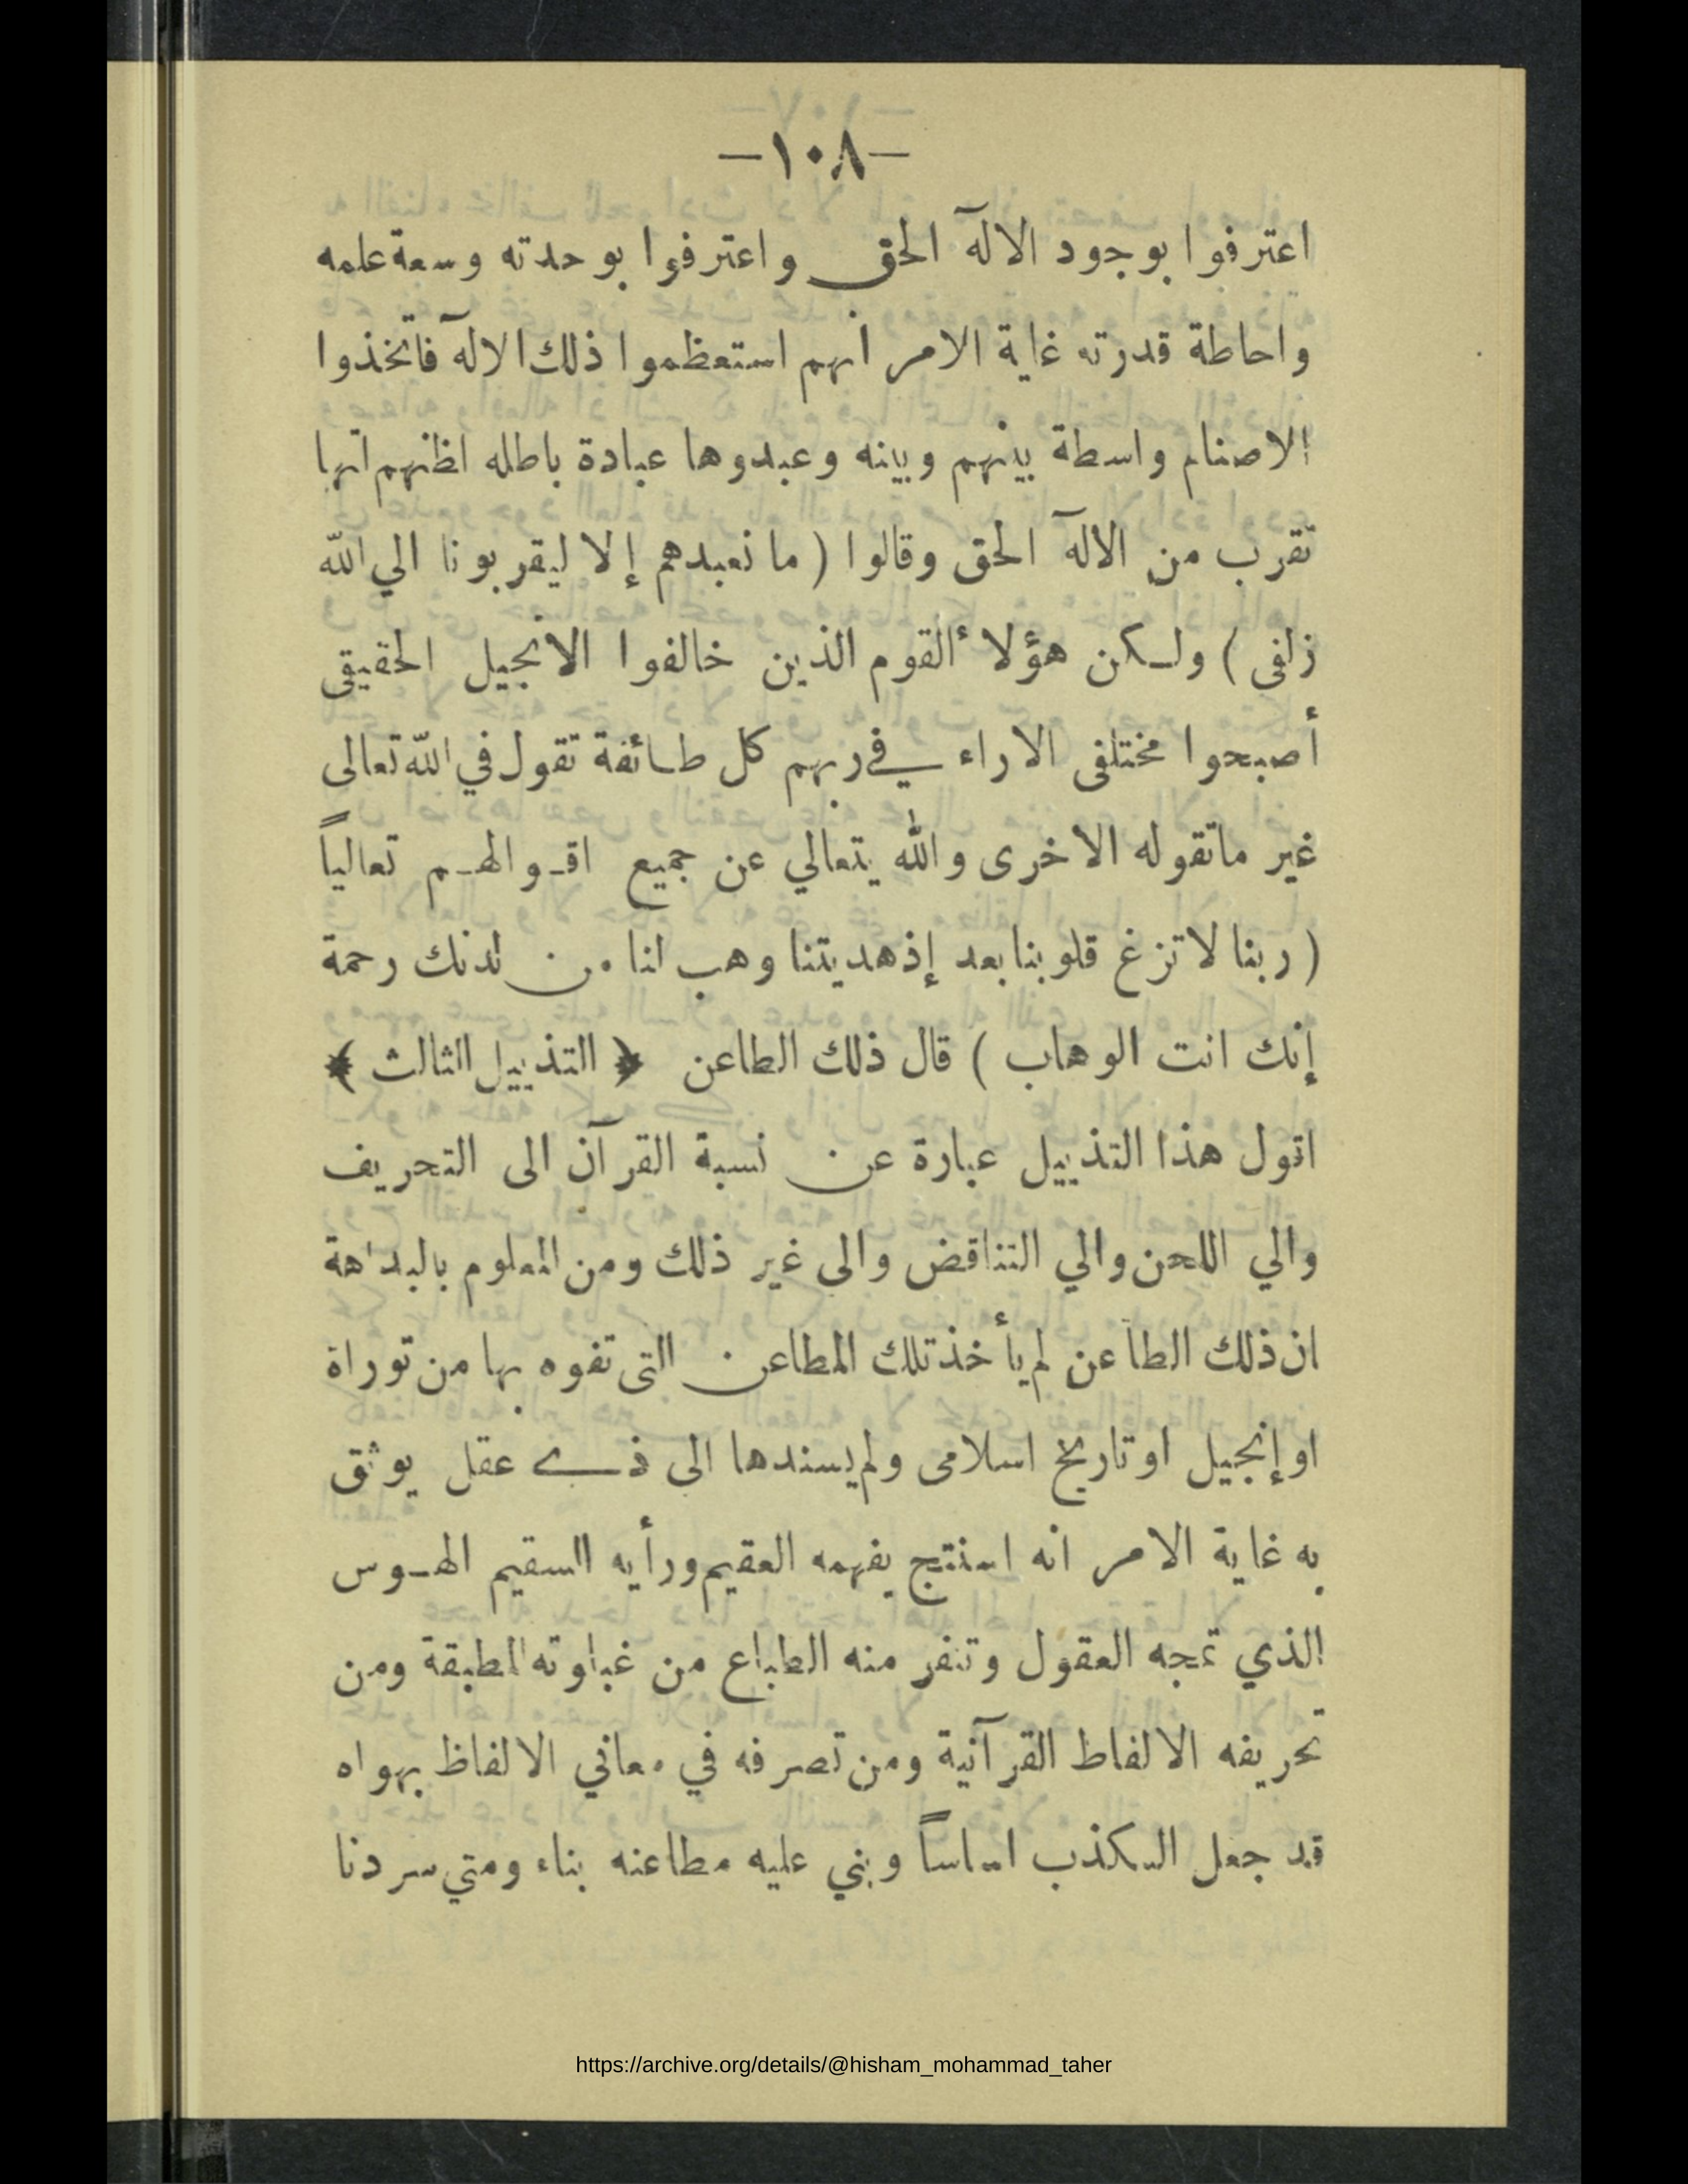 —١٠٨—
اعترفوا بوجود الآله الحق واعترفوا بوحدته وسعة علمه
واحاطة قدرته غاية الامر أنهم استعظموا ذلك الآله فاتخذوا
الاصنام واسطة بينهم وبينه وعبدوها عبادة باطله لظنهم انها
تقرب من الآله الحق وقالوا ( ما نعبدهم إلا ليقربونا الي الله
زلفى ) ولكن هؤلاء القوم الذين خالفوا الانجيل الحقيقى
أصبحوا مختلفى الاراء في ربهم كل طائفة تقول في الله تعالى
غير ماتقوله الاخرى والله يتعالي عن جميع اقوالهم تعالياً
( ربنا لا تزغ قلوبنا بعد إذهديتنا وهب لنا من لدنك رحمة
إنك انت الوهاب ) قال ذلك الطاعن ﴿ التذييل الثالث ﴾
اقول هذا التذييل عبارة عن نسبة القرآن الى التحريف
والي اللحن والي التناقض والى غير ذلك ومن المعلوم بالبداهة
ان ذلك الطاعن لم يأخذ تلك المطاعن التى تفوه بها من توراة
او إنجيل او تاريخ اسلامى ولم يسندها الى ذي عقل يوثق
به غاية الامر انه استنتج بفهمه العقيم ورأيه السقيم الهوس
الذي تمجه العقول وتنفر منه الطباع من غباوته المطبقة ومن
تحريفه الالفاظ القرآنية ومن تصرفه في معاني الالفاظ بهواه
قد جعل الكذب اساساً وبني عليه مطاعنه بناء ومتي سردنا
https://archive.org/details/@hisham_mohammad_taher